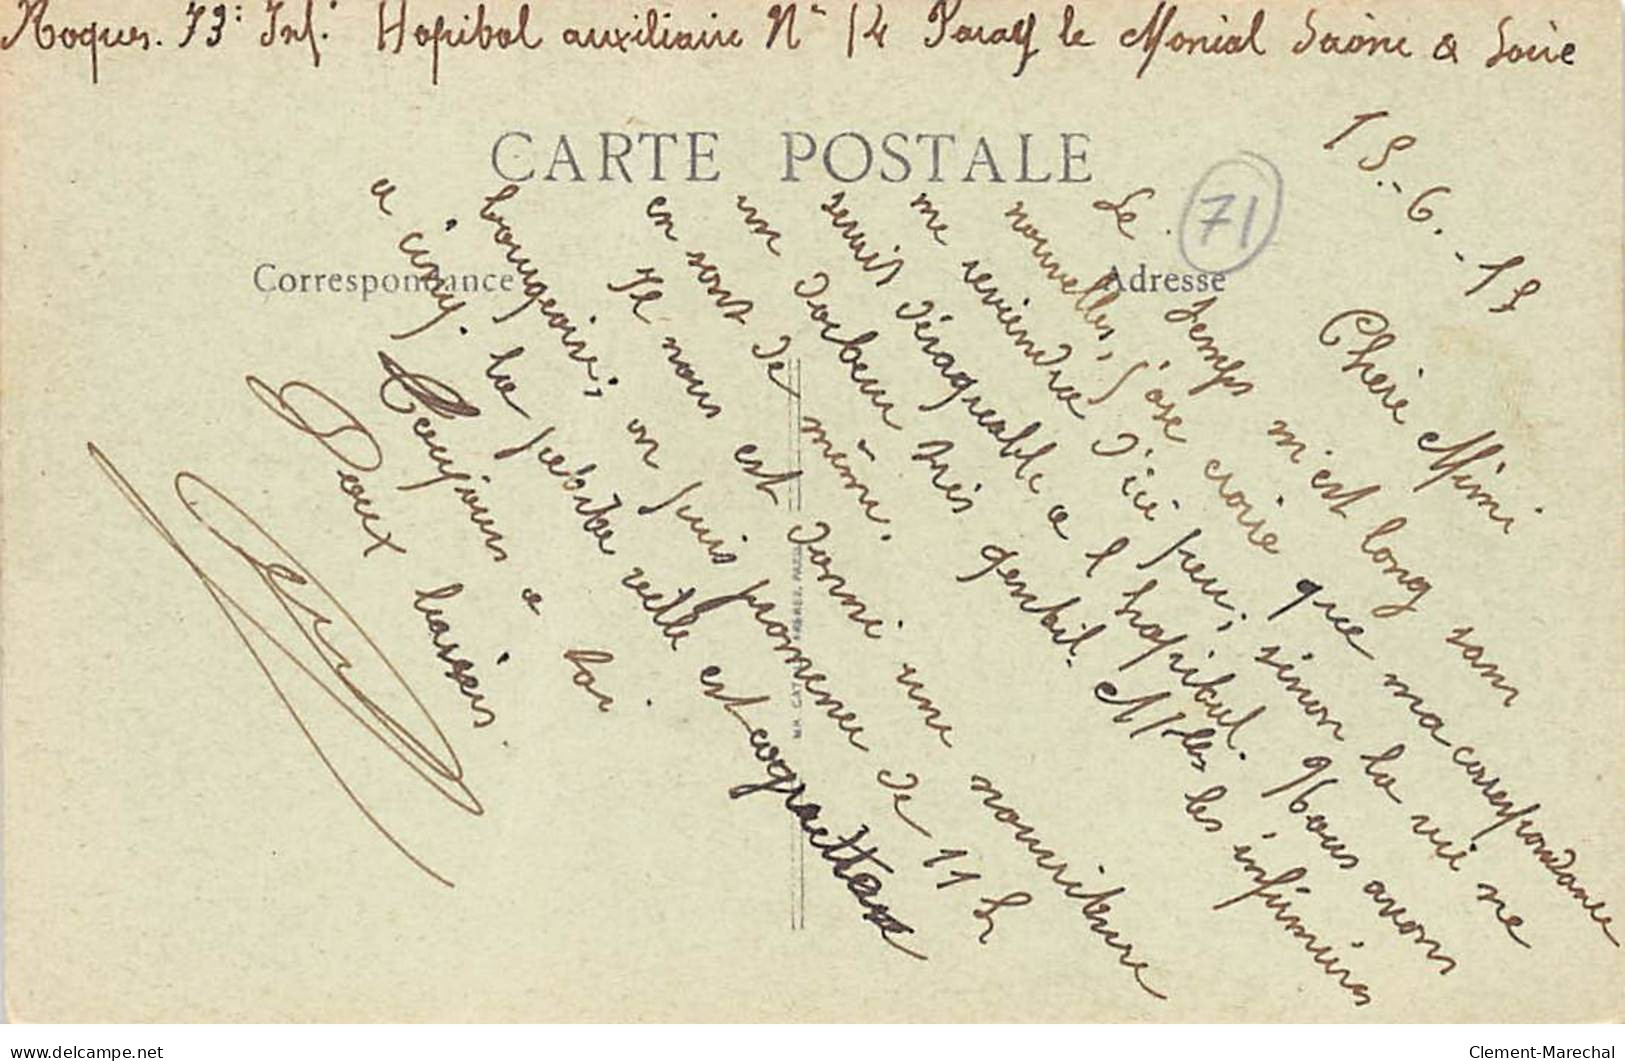 Roques. 73e Inf. Hopital auxiliaire No 14 Paray le Monial Saône & Loire
CARTE POSTALE
71
Correspondance
Adresse
15.-6.-15
Chère Mimi
Le temps m'est long sans
nouvelles, j'ose croire que ma correspondance
me reviendra d'ici peu; sinon la vie ne
serait désagreable a l hopital. Nous avons
un docteur très gentil. Melles les infirmières
en sont de même.
Il nous est donné une nourriture
bourgeoise; on puis promener de 11 h
a cinq. la petite ville est coquette
Toujours a toi.
Doux baisers.